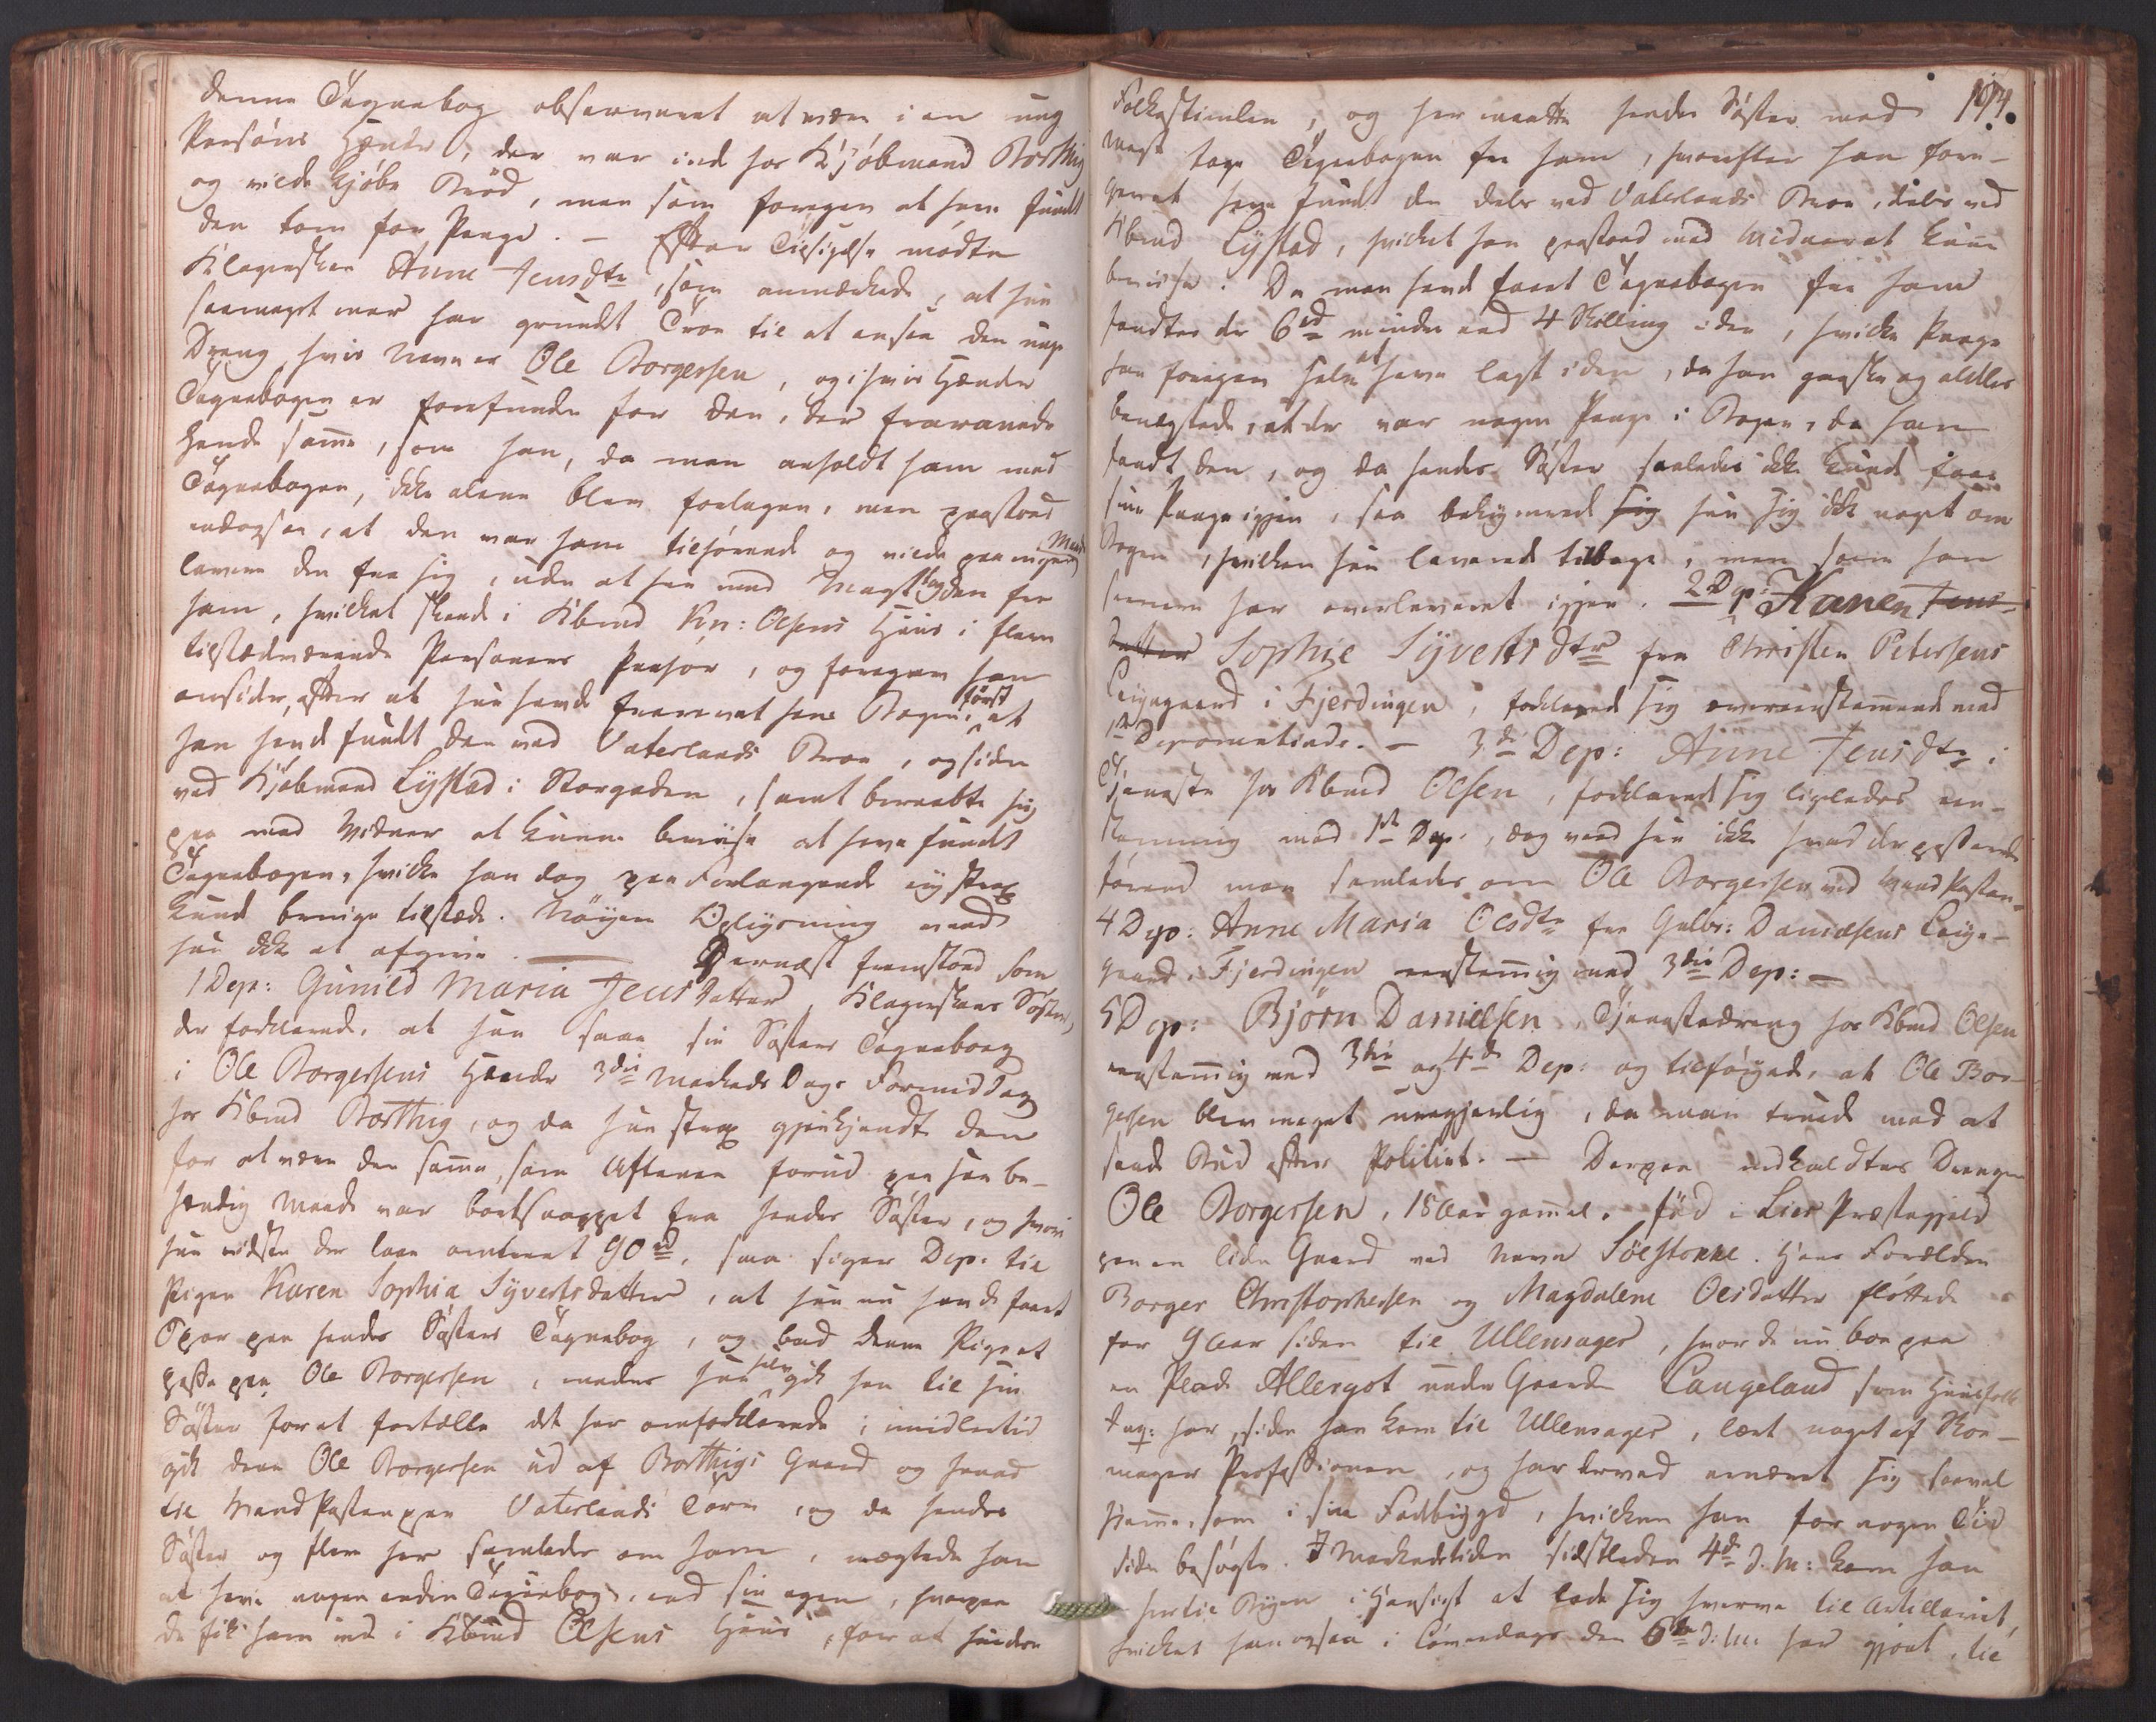 denne Tegnebog observeret at være i en ung
Persons Hænder, der var ind hos Kjøbmand Borthig
og vilde kjøbe Brød, men som foregav at have fundt
den tom for Penge. — Efter Tilsigelse mødte
Klagersken Anne Jensdtr, som anmærkede, at hun
saameget mer har grundt Troe til at ansee den unge
Dreng, hvis Navn er Ole Borgersen, og i hvis Hænder
Tegnebogen er forefunden for den, der fravendte
hende samme, som han, da man anholdt ham med
Tegnebogen, ikke alene blev forlegen, men paastod
endogsaa, at den var ham tilhørende og vilde paa ingen Maade
levere den fra sig, uden at han med Magt tog den fra
ham, hvilket skeede i Kbmd Kn: Olsens Huus i flere
tilstædeværende Personers Paahør, og foregav han
omsider, efter at hun havde fravendt ham Bogen, først at
han havde fundt den ved Vaterlands Broe, og siden
ved Kjøbmand Lystad i Storgaden, samt beraabte sig
paa med Vidner at kunne beviise at have fundt
Tegnebogen, hvilke han dog paa Forlangende ey strax
kunde bringe tilstæde. Nøyere Oplysning veed
hun ikke at afgive. — Dernæst fremstod som
1 Dep: Gunild Maria Jensdatter, Klagerskens Søster,
der forklarede, at hun saae sin Søsters Tegnebog
i Ole Borgersens Hænder 3die Markeds Dags Formiddag
hos Kbmd Borthig, og da hun strax gjenkjendte den
for at være den samme, som Aftenen forud paa en be-
hændig Maade var bortsnappet fra hendes Søster, og hvori
hun vidste der laae omtrent 90 rd, saa siger Dep. til
Pigen Karen Sophia Syvertsdatter, at hun nu havde faaet
Spor paa hendes Søsters Tegnebog, og bad denne Pige at
passe paa Ole Borgersen, medens hun selv gik hen til sin
Søster for at fortælle det her omforklarede; imidlertid
gik denne Ole Borgersen ud af Borthigs Gaard og hened
til VandPosten paa Vaterlands Torv, og da hendes
Søster og flere her samledes om ham, nægtede han
at have nogen anden Tegnebog, end sin egen, hvorpaa
de fik ham ind i Kbmd Olsens Huus, for at hindre
194.
Folkestimlen, og her maatte hendes Søster med
Magt tage Tegnebogen fra ham, hvorefter han fore-
gavet have fundt den deels ved Vaterlands Broe, deels ved
Kbmd Lystad, hvilket han paastod med Vidner at kunne
beviise. Da man havde faaet Tegnebogen fra ham
fandtes der 6 rd mindre end 4 Skilling i den, hvilke Penge
han foregav selv at have lagt i den, da han ganske og aldeles
benægtede, at der var nogen Penge i Bogen, da han
fandt den, og da hendes Søster saaledes ikke kunde faae
sine Penge igjen, saa bekymrede sig hun sig ikke noget om
Bogen, hvilken hun leverede tilbage, men som han
senere har overleveret igjen. 2 Dep: Karen Jens-
datter Sophie Syverts dtr fra Christen Petersens
Leyegaard i Fjerdingen, forklarede sig overenstemmende med
1ste Deponentinde. — 3die Dep: Anne Jensdtr i
Tjeneste hos Kbmd Olsen, forklarede sig ligeledes een-
stemmig med 1ste Dep., dog veed hun ikke hvad der passerede
førend man samledes om Ole Borgersen ved VandPosten.
4 Dep: Anne Maria Olsdtr fra Gulbr: Danielsens Leye-
gaard i Fjerdingen eenstemmig med 3die Dep: —
5 Dep: Bjørn Danielsen, Tjenestedreng hos Kbmd Olsen
eenstemmig med 3die og 4de Dep: og tilføyede, at Ole Bor-
gersen blev meget uregjerlig, da man truede med at
sende Bud efter Politiet. — Derpaa indkaldtes Drengen
Ole Borgersen, 18 Aar gammel, fød i Lier Præstegjeld
paa en liden Gaard ved Navn Sølstokke. Hans Forældre
Borger Christophersen og Magdalene Olsdatter fløttede
for 9 Aar siden til Ullensager, hvor de nu boe paa
en Plads Allergot under Gaarden Langeland som Huusfolk
Dep: har, siden han kom til Ullensager, lært noget af Skoe-
mager Professionen, og har derved ernæret sig saavel
hjemme, som i sin Fødebygd, hvilken han for nogen Tid
siden besøgte. I Markedstiden sidstleden 4de d. M: kom han
her til Byen i Hensigt at lade sig hverve til Artilleriet,
hvilket han ogsaa i Løverdags den 6te d: M: har gjort, til